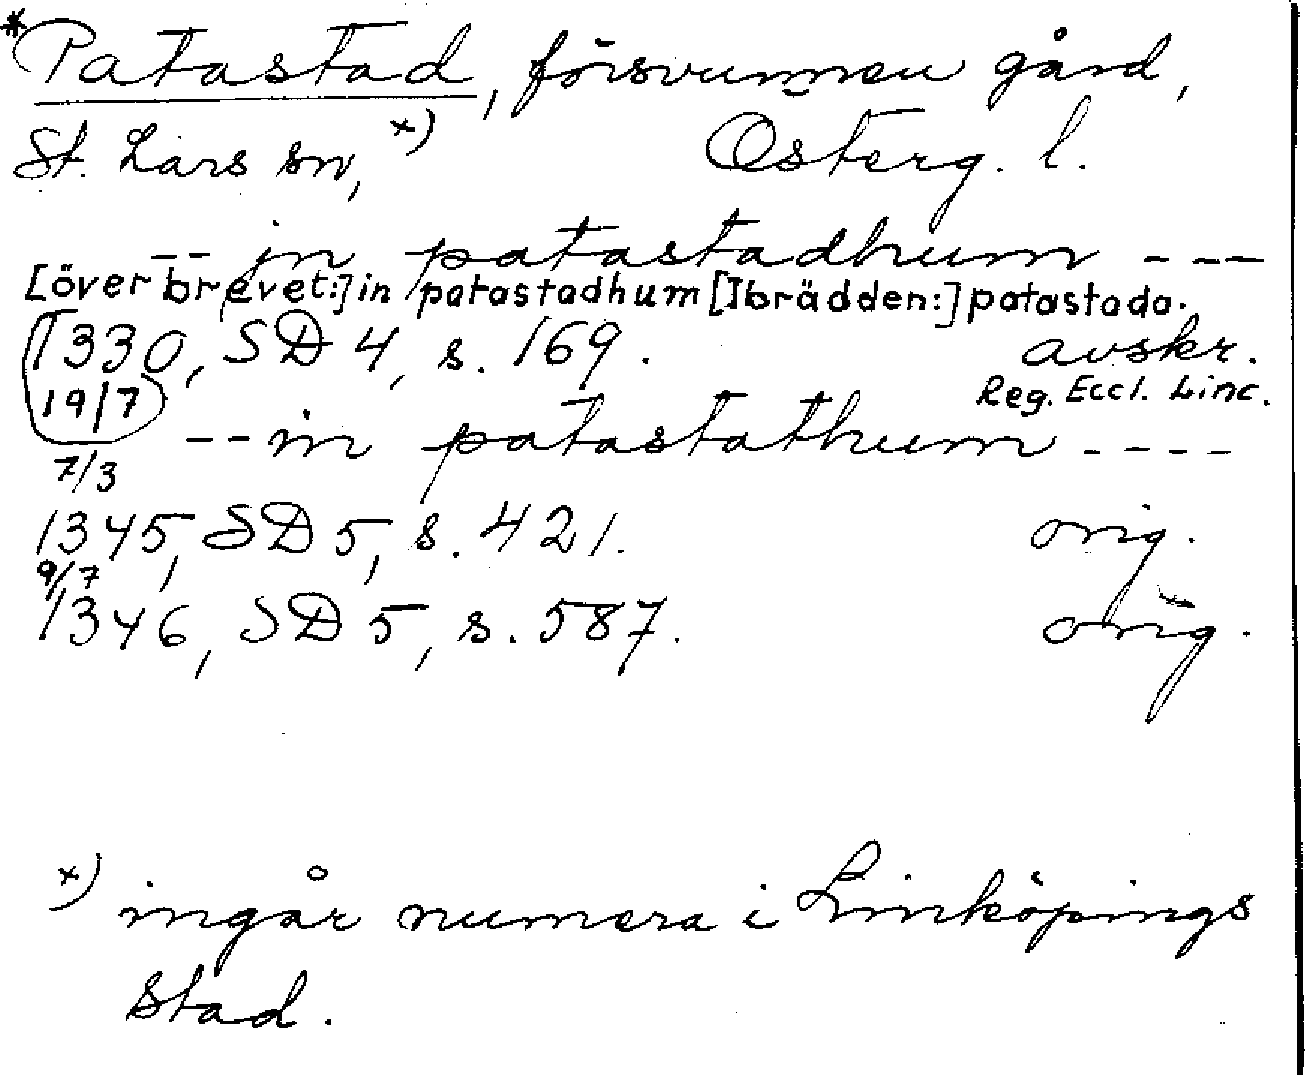 *Patastad, försvunnen gård,
St. Lars sn, x) Österg. l.
-- in patastadhum ---
[över brevet:] in patastadhum [I brädden:] patastada.
1330, SD 4, s. 169. avskr.
19/7 Reg. Eccl. Linc.
-- in patastathum ----
7/3
1345, SD 5, s. 421. orig.
9/7
1346, SD 5, s. 587. orig.
x) ingår numera i Linköpings
stad.